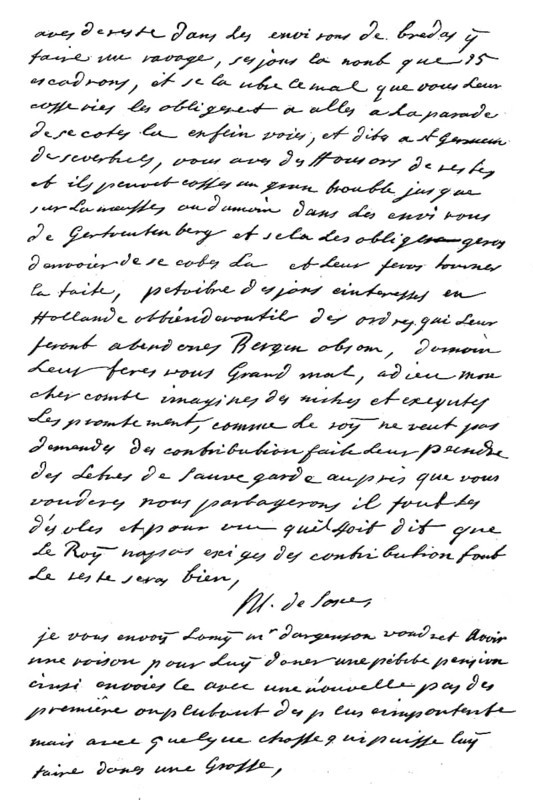 aves de reste dans les environs de bredas ÿ
faire un ravage, ses jans la nont que 25
escadrons, et se la ubre le mal que vous leur
cosse ries les obligeret a alles a la parade
de se cotes la enfein voies, et dites a st Germein
de severhies, vous aves des Housors de restes
et ils peuvet cosses un gran trouble jusque
sur la meusses ou dumoin dans les envirous
de Gertrutenberg et sela les obligeros
d'envoier de se cotes la et leur feros tournes
la taite, petaitre des jans einteresses en
Hollande obtiénderoutil des ordres qui leur
feront abendones Bergen obsom, dumoin
leur feres vous Grand mal, adieu mon
cher combe imagines des niches et exequtes
les promtement, comme le roÿ ne veut pas
demandes des contribution faite leur prendre
des letres de sauve garde aupris que vous
vouderes nous partagerons il fout les
désoles et pour vu quel soit dit que
le Roÿ napas exiges des contribution tout
le reste seras bien,
M. de Saxe,
je vous envoÿ Lamÿ mr dargenson voudret Avoir
une roison pour luÿ doner une pétite pension
einsi envoies le avec une nouvelle pas des
première ou plutaut des plus eimportente
mais avec quelque chosse qui puisse luÿ
faire dones une Grosse,